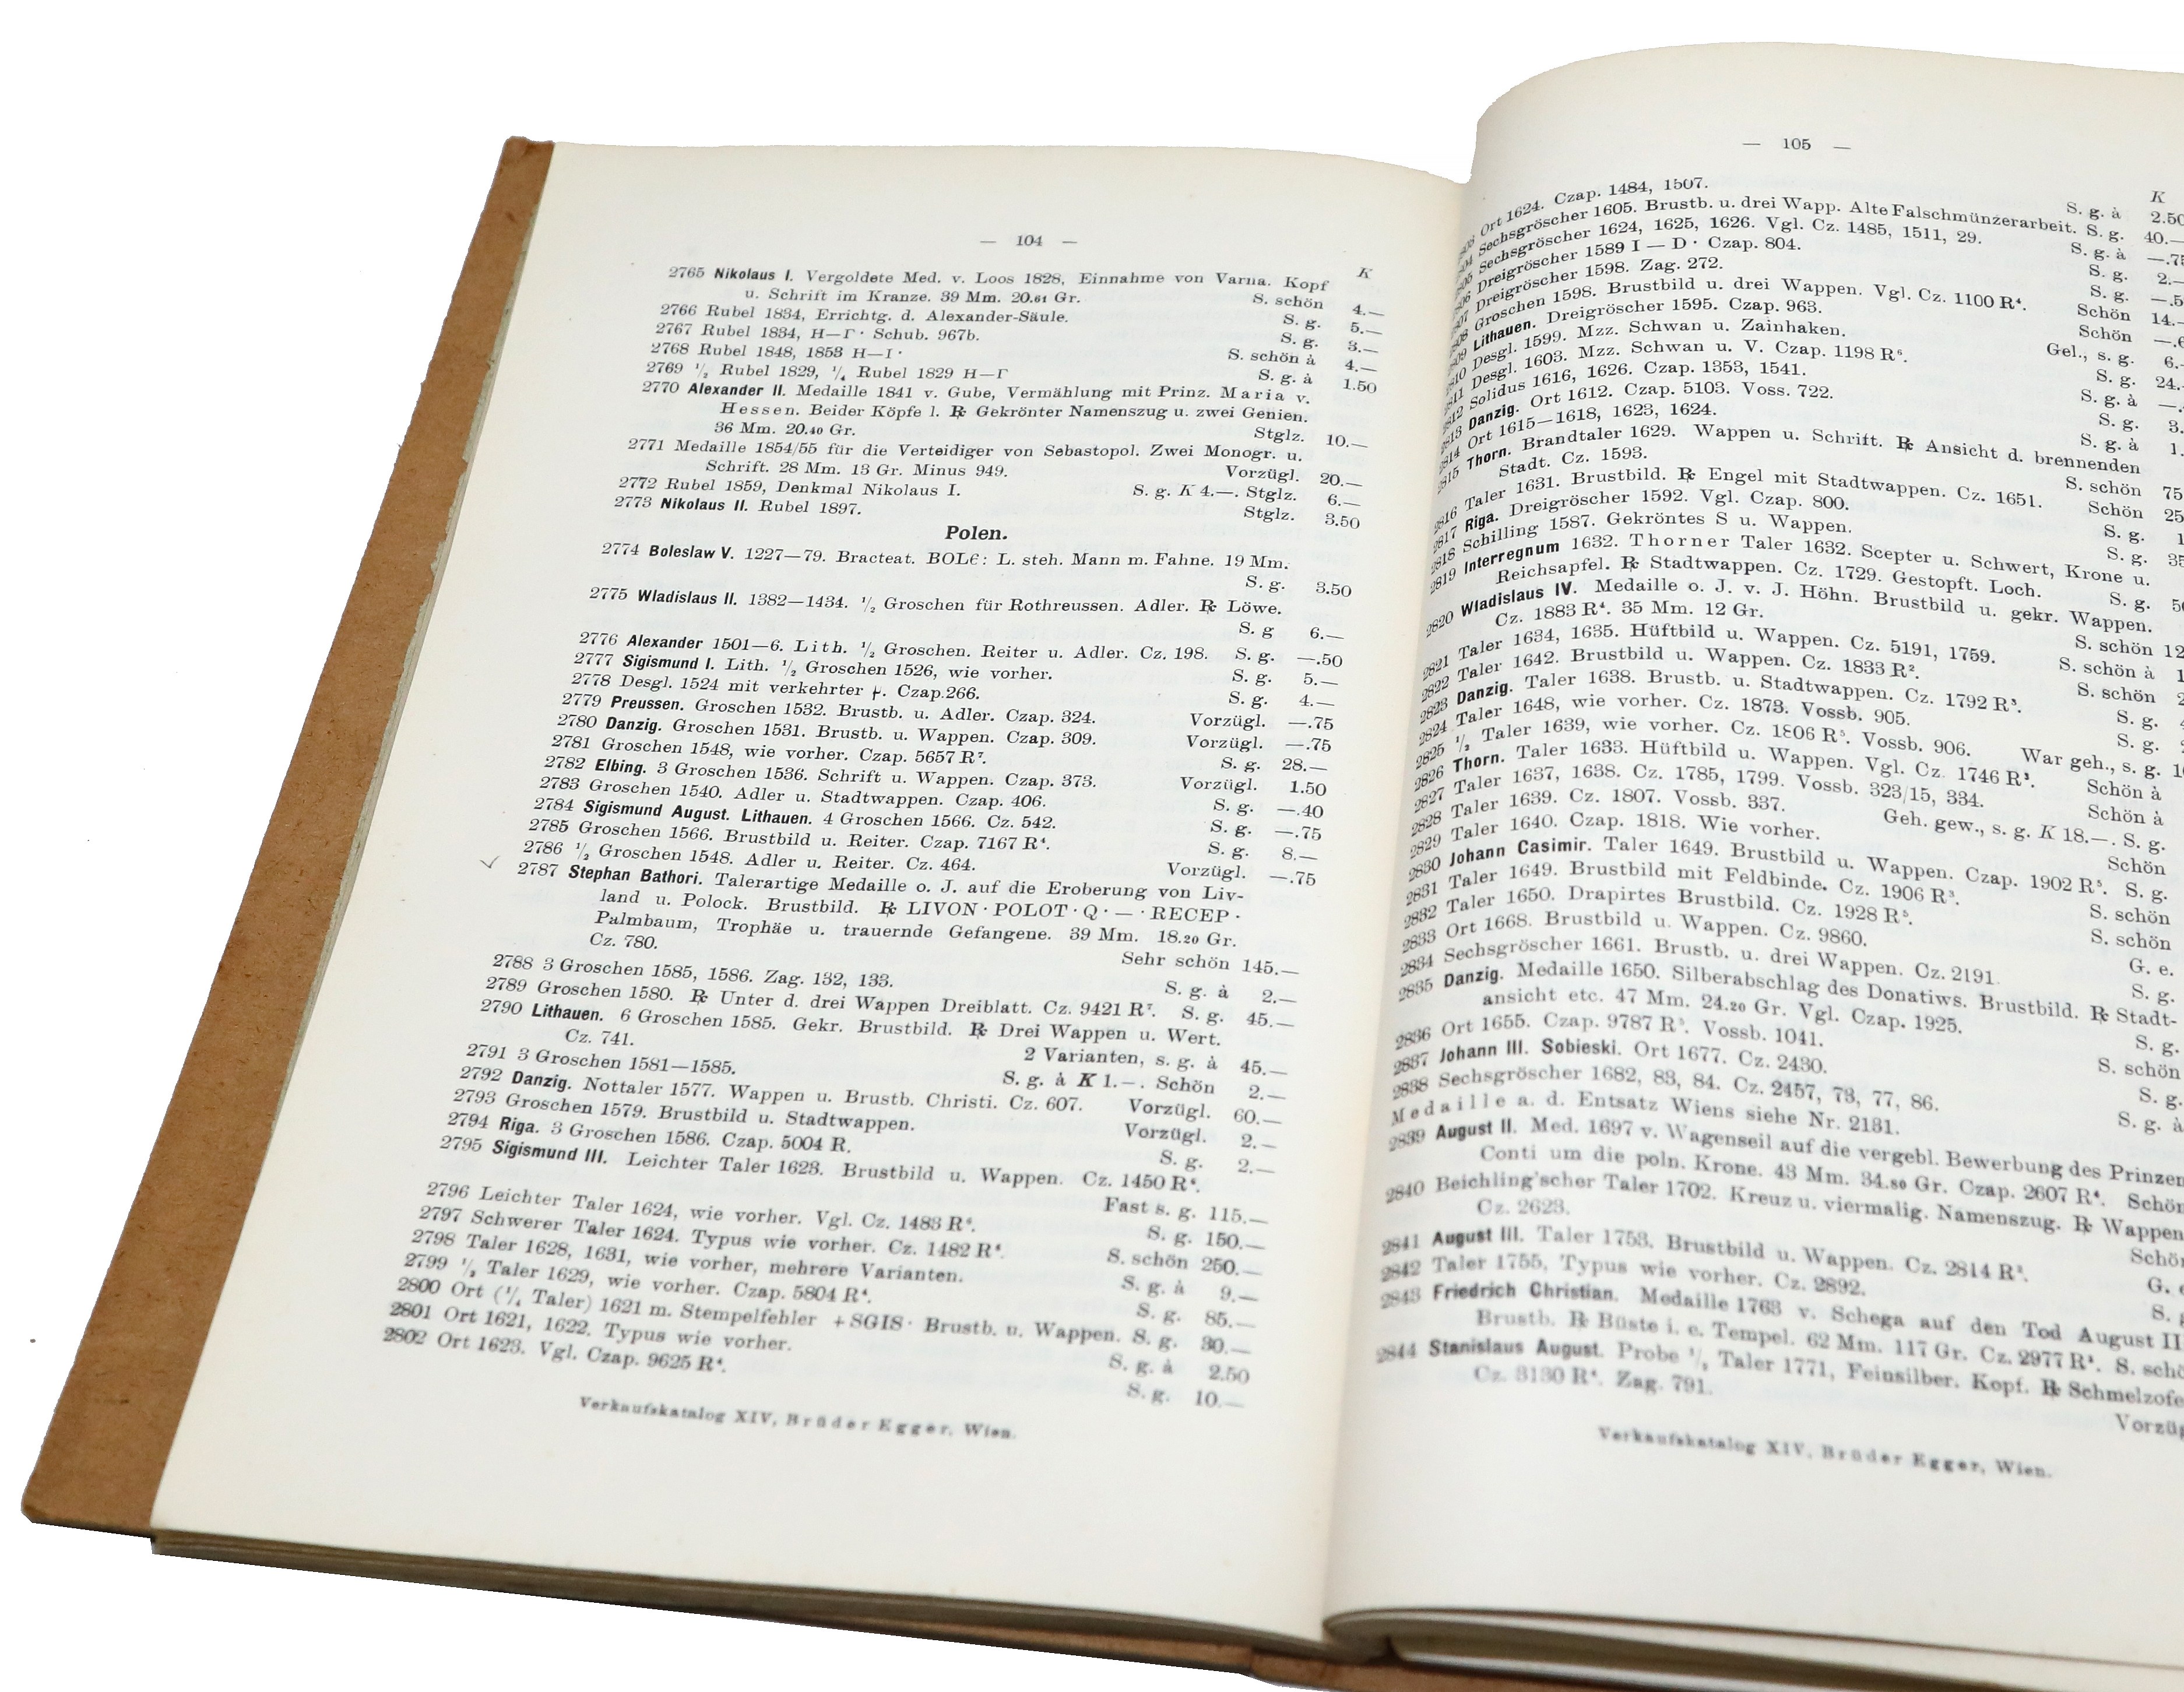 — 104 —
K
2765 Nikolaus I. Vergoldete Med. v. Loos 1828, Einnahme von Varna. Kopf
u. Schrift im Kranze. 39 Mm. 20.61 Gr. S. schön 4.—
2766 Rubel 1834, Errichtg. d. Alexander-Säule. S. g. 5.—
2767 Rubel 1834, H—Γ· Schub. 967b. S. g. 3.—
2768 Rubel 1848, 1853 H—I· S. schön à 4.—
2769 ½ Rubel 1829, ¼ Rubel 1829 H—Γ S. g. à 1.50
2770 Alexander II. Medaille 1841 v. Gube, Vermählung mit Prinz. Maria v.
Hessen. Beider Köpfe l. ℞ Gekrönter Namenszug u. zwei Genien.
36 Mm. 20.40 Gr. Stglz. 10.—
2771 Medaille 1854/55 für die Verteidiger von Sebastopol. Zwei Monogr. u.
Schrift. 28 Mm. 13 Gr. Minus 949. Vorzügl. 20.—
2772 Rubel 1859, Denkmal Nikolaus I. S. g. K 4.—. Stglz. 6.—
2773 Nikolaus II. Rubel 1897. Stglz. 3.50
Polen.
2774 Boleslaw V. 1227—79. Bracteat. BOLЄ: L. steh. Mann m. Fahne. 19 Mm.
S. g. 3.50
2775 Wladislaus II. 1382—1434. ½ Groschen für Rothreussen. Adler. ℞ Löwe.
S. g 6.—
2776 Alexander 1501—6. Lith. ½ Groschen. Reiter u. Adler. Cz. 198. S. g. —.50
2777 Sigismund I. Lith. ½ Groschen 1526, wie vorher. S. g. 5.—
2778 Desgl. 1524 mit verkehrter Czap.266. S. g. 4.—
2779 Preussen. Groschen 1532. Brustb. u. Adler. Czap. 324. Vorzügl. —.75
2780 Danzig. Groschen 1531. Brustb. u. Wappen. Czap. 309. Vorzügl. —.75
2781 Groschen 1548, wie vorher. Czap. 5657 R⁷. S. g. 28.—
2782 Elbing. 3 Groschen 1536. Schrift u. Wappen. Czap. 373. Vorzügl. 1.50
2783 Groschen 1540. Adler u. Stadtwappen. Czap. 406. S. g. —.40
2784 Sigismund August. Lithauen. 4 Groschen 1566. Cz. 542. S. g. —.75
2785 Groschen 1566. Brustbild u. Reiter. Czap. 7167 R⁴. S. g. 8.—
2786 ½ Groschen 1548. Adler u. Reiter. Cz. 464. Vorzügl. —.75
2787 Stephan Bathori. Talerartige Medaille o. J. auf die Eroberung von Liv-
land u. Polock. Brustbild. ℞ LIVON·POLOT·Q·—·RECEP·
Palmbaum, Trophäe u. trauernde Gefangene. 39 Mm. 18.20 Gr.
Cz. 780. Sehr schön 145.—
2788 3 Groschen 1585, 1586. Zag. 132, 133. S. g. à 2.—
2789 Groschen 1580. ℞ Unter d. drei Wappen Dreiblatt. Cz. 9421 R⁷. S. g. 45.—
2790 Lithauen. 6 Groschen 1585. Gekr. Brustbild. ℞ Drei Wappen u. Wert.
Cz. 741. 2 Varianten, s. g. à 45.—
2791 3 Groschen 1581—1585. S. g. à K 1.—. Schön 2.—
2792 Danzig. Nottaler 1577. Wappen u. Brustb. Christi. Cz. 607. Vorzügl. 60.—
2793 Groschen 1579. Brustbild u. Stadtwappen. Vorzügl. 2.—
2794 Riga. 3 Groschen 1586. Czap. 5004 R. S. g. 2.—
2795 Sigismund III. Leichter Taler 1623. Brustbild u. Wappen. Cz. 1450 R⁴.
Fast s. g. 115.—
2796 Leichter Taler 1624, wie vorher. Vgl. Cz. 1483 R⁴. S. g. 150.—
2797 Schwerer Taler 1624. Typus wie vorher. Cz. 1482 R⁴. S. schön 250.—
2798 Taler 1628, 1631, wie vorher, mehrere Varianten. S. g. à 9.—
2799 ½ Taler 1629, wie vorher. Czap. 5804 R⁴. S. g. 85.—
2800 Ort (¼ Taler) 1621 m. Stempelfehler +SGIS· Brustb. u. Wappen. S. g. 30.—
2801 Ort 1621, 1622. Typus wie vorher. S. g. à 2.50
2802 Ort 1623. Vgl. Czap. 9625 R⁴. S. g. 10.—
Verkaufskatalog XIV, Brüder Egger, Wien.
— 105 —
K
Ort 1624. Czap. 1484, 1507. S. g. à 2.50
Sechsgröscher 1605. Brustb. u. drei Wapp. Alte Falschmünzerarbeit. S. g. 40.—
Sechsgröscher 1624, 1625, 1626. Vgl. Cz. 1485, 1511, 29. S. g. à —.75
Dreigröscher 1589 I—D· Czap. 804. S. g. 2.—
Dreigröscher 1598. Zag. 272. S. g.
Groschen 1598. Brustbild u. drei Wappen. Vgl. Cz. 1100 R⁴. Schön 14.—
2809 Lithauen. Dreigröscher 1595. Czap. 963. Schön
2810 Desgl. 1599. Mzz. Schwan u. Zainhaken. Gel., s. g. 6.—
2811 Desgl. 1603. Mzz. Schwan u. V. Czap. 1198 R⁶. S. g. 24.—
2812 Solidus 1616, 1626. Czap. 1353, 1541. S. g. à
2813 Danzig. Ort 1612. Czap. 5103. Voss. 722. S. g. 3.
2814 Ort 1615—1618, 1623, 1624. S. g. à 1.
2815 Thorn. Brandtaler 1629. Wappen u. Schrift. ℞ Ansicht d. brennenden
Stadt. Cz. 1593. S. schön 75
2816 Taler 1631. Brustbild. ℞ Engel mit Stadtwappen. Cz. 1651. Schön 25
2817 Riga. Dreigröscher 1592. Vgl. Czap. 800. S. g.
2818 Schilling 1587. Gekröntes S u. Wappen. S. g. 35
2819 Interregnum 1632. Thorner Taler 1632. Scepter u. Schwert, Krone u.
Reichsapfel. ℞ Stadtwappen. Cz. 1729. Gestopft. Loch. S. g.
2820 Wladislaus IV. Medaille o. J. v. J. Höhn. Brustbild u. gekr. Wappen.
Cz. 1883 R⁴. 35 Mm. 12 Gr. S. schön 12
2821 Taler 1634, 1635. Hüftbild u. Wappen. Cz. 5191, 1759. S. schön à
2822 Taler 1642. Brustbild u. Wappen. Cz. 1833 R². S. schön
2823 Danzig. Taler 1638. Brustb. u. Stadtwappen. Cz. 1792 R³. S. g.
2824 Taler 1648, wie vorher. Cz. 1873. Vossb. 905. S. g.
2825 ½ Taler 1639, wie vorher. Cz. 1806 R⁵. Vossb. 906. War geh., s. g.
2826 Thorn. Taler 1633. Hüftbild u. Wappen. Vgl. Cz. 1746 R³. Schön à
2827 Taler 1637, 1638. Cz. 1785, 1799. Vossb. 323/15, 334. Schön à
2828 Taler 1639. Cz. 1807. Vossb. 337. Geh. gew., s. g. K 18.—. S. g.
2829 Taler 1640. Czap. 1818. Wie vorher. Schön
2830 Johann Casimir. Taler 1649. Brustbild u. Wappen. Czap. 1902 R⁵. S. g.
2831 Taler 1649. Brustbild mit Feldbinde. Cz. 1906 R³. S. schön
2832 Taler 1650. Drapirtes Brustbild. Cz. 1928 R⁵. S. schön
2833 Ort 1668. Brustbild u. Wappen. Cz. 9860. G. e.
2834 Sechsgröscher 1661. Brustb. u. drei Wappen. Cz. 2191. S. g.
2835 Danzig. Medaille 1650. Silberabschlag des Donatiws. Brustbild. ℞ Stadt-
ansicht etc. 47 Mm. 24.20 Gr. Vgl. Czap. 1925. S. g.
2836 Ort 1655. Czap. 9787 R³. Vossb. 1041. S. schön
2837 Johann III. Sobieski. Ort 1677. Cz. 2430. S. g.
2838 Sechsgröscher 1682, 83, 84. Cz. 2457, 73, 77, 86. S. g. à
Medaille a. d. Entsatz Wiens siehe Nr. 2131.
2839 August II. Med. 1697 v. Wagenseil auf die vergebl. Bewerbung des Prinzen
Conti um die poln. Krone. 43 Mm. 34.80 Gr. Czap. 2607 R⁴. Schön
2840 Beichling'scher Taler 1702. Kreuz u. viermalig. Namenszug. ℞ Wappen
Cz. 2623. Schön
2841 August III. Taler 1753. Brustbild u. Wappen. Cz. 2814 R². G. e
2842 Taler 1755, Typus wie vorher. Cz. 2892. S.
2843 Friedrich Christian. Medaille 1763 v. Schega auf den Tod August II
Brustb. ℞ Büste i. e. Tempel. 62 Mm. 117 Gr. Cz. 2977 R³. S. schö
2844 Stanislaus August. Probe Taler 1771, Feinsilber. Kopf. ℞ Schmelzofe
Cz. 3130 R⁴. Zag. 791. Vorzüg
Verkaufskatalog XIV, Brüder Egger, Wien.